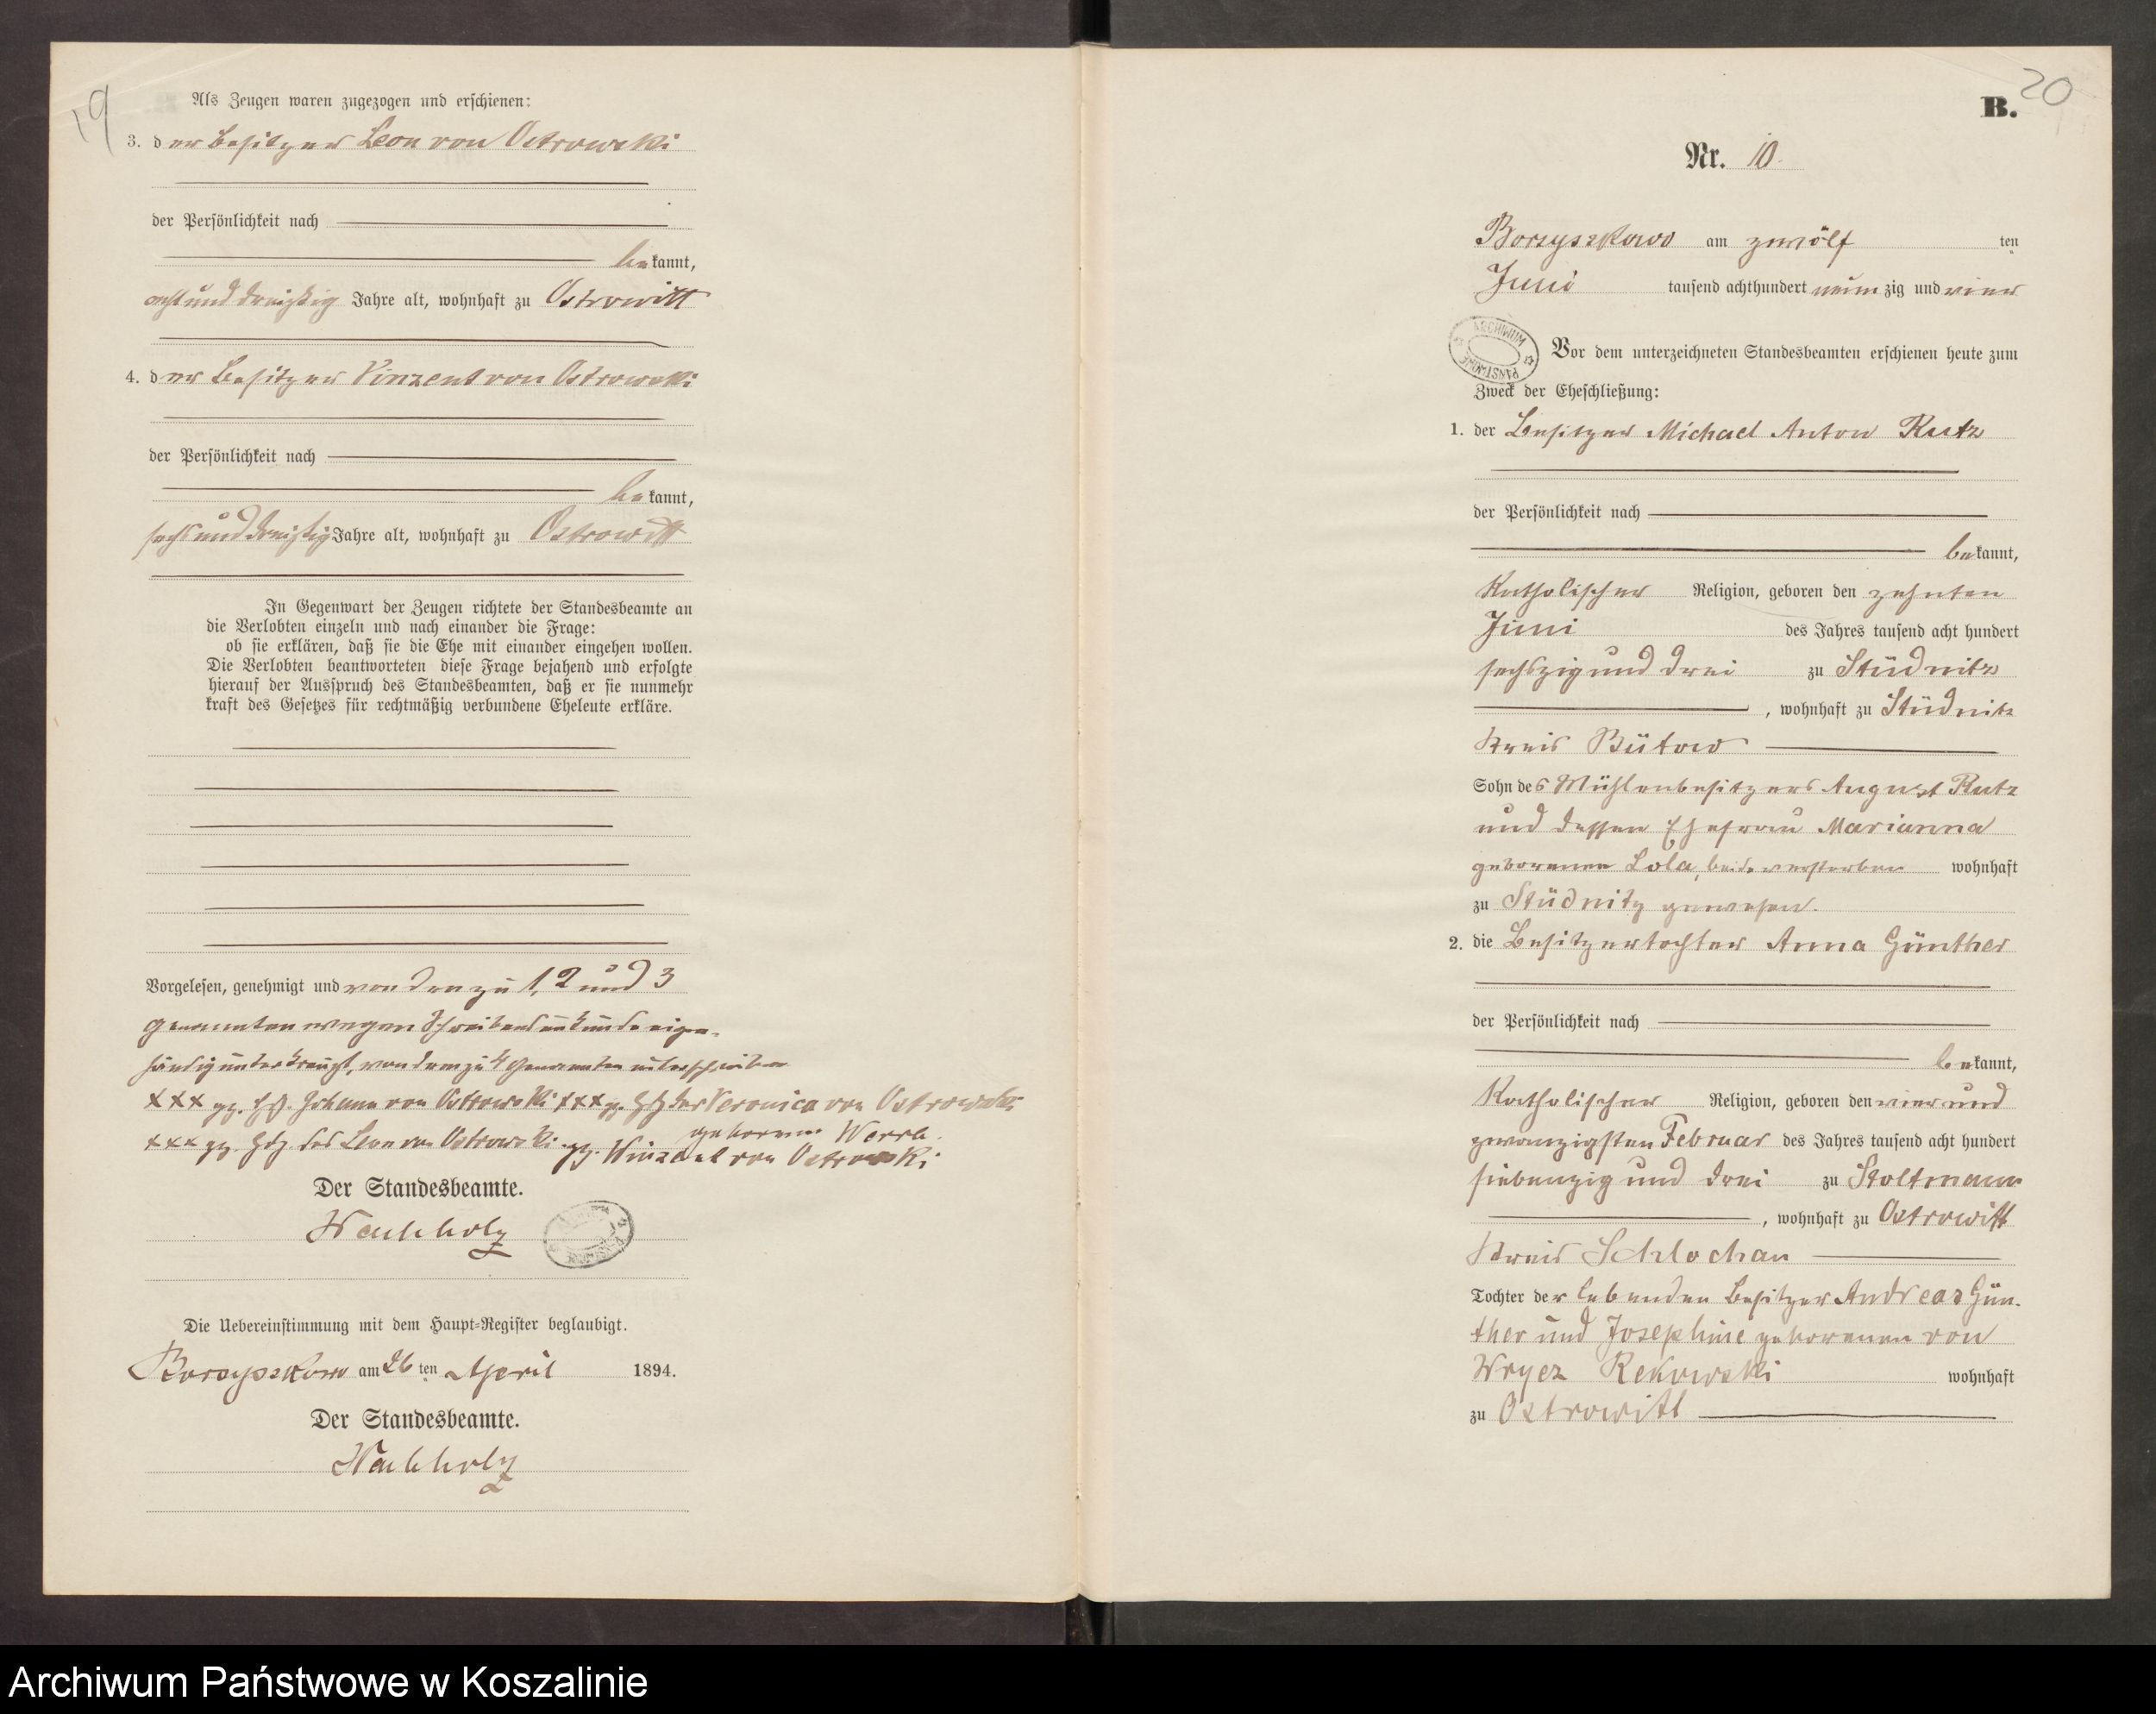 19
Als Zeugen waren zugezogen und erschienen:
3. der Besitzer Leon von Ostrowski
der Persönlichkeit nach
bekannt,
acht und dreißig Jahre alt, wohnhaft zu Ostrowitt
4. der Besitzer Vinzent von Ostrowski
der Persönlichkeit nach
bekannt,
sechs und dreißig Jahre alt, wohnhaft zu Ostrowitt
In Gegenwart der Zeugen richtete der Standesbeamte an
die Verlobten einzeln und nach einander die Frage:
ob sie erklären, daß sie die Ehe mit einander eingehen wollen.
Die Verlobten beantworteten diese Frage bejahend und erfolgte
hierauf der Ausspruch des Standesbeamten, daß er sie nunmehr
kraft des Gesetzes für rechtmäßig verbundene Eheleute erkläre.
Vorgelesen, genehmigt und von den zu 1, 2 und 3
genannten wegen Schreibensunkunde eigen-
händig unterkreuzt, von dem zu 4 Genannten unterschrieben
xxx gz. Hdz. Johann von Ostrowski xxx gz. Hdz der Veronica von Ostrowski
geborene Werra.
xxx gz. Hdz. des Leon von Ostrowski gz. Winzent von Ostrowski
Der Standesbeamte.
Wachholz
Die Uebereinstimmung mit dem Haupt-Register beglaubigt.
Borzyszkowo am 26 ten April 1894.
Der Standesbeamte.
Wachholz
20
B.
Nr. 10.
Borzyszkowo am zwölf ten
Juni tausend achthundert neunzig und vier
ARCHIWUM PAŃSTWOWE
Vor dem unterzeichneten Standesbeamten erschienen heute zum
Zweck der Eheschließung:
1. der Besitzer Michael Anton Kutz
der Persönlichkeit nach
bekannt,
Katholischer Religion, geboren den zehnten
Juni des Jahres tausend acht hundert
sechszig und drei zu Stüdnitz
, wohnhaft zu Stüdnitz
Kreis Bütow
Sohn des Mühlenbesitzers August Kutz
und dessen Ehefrau Marianna
geborenen Lola, beide verstorben wohnhaft
zu Stüdnitz gewesen.
2. die Besitzertochter Anna Günther
der Persönlichkeit nach
bekannt,
Katholischer Religion, geboren den vier und
zwanzigsten Februar des Jahres tausend acht hundert
siebenzig und drei zu Stoltmann
, wohnhaft zu Ostrowitt
Kreis Schlochau
Tochter der lebenden Besitzer Andreas Gün-
ther und Josephine geborenen von
Wrycz Rekowski wohnhaft
zu Ostrowitt
Archiwum Państwowe w Koszalinie